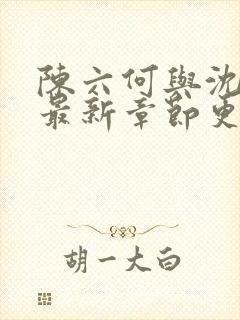 陳六何與沈
最新章節更
胡一大白